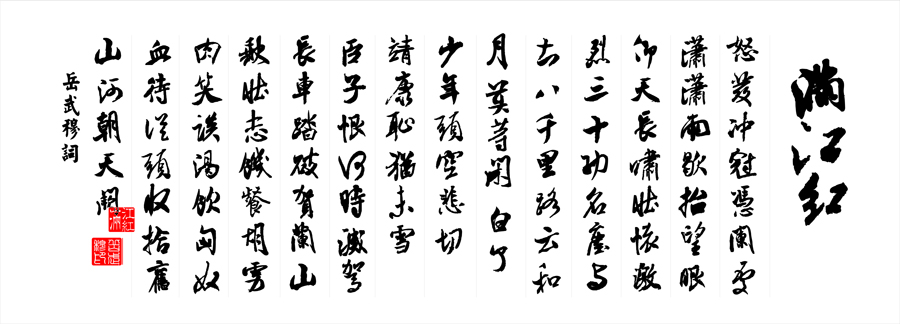 滿江紅
怒发冲冠憑闌處
瀟瀟雨歇抬望眼
仰天長嘯壯懷激
烈三十功名塵与
土八千里路云和
月莫等閑白了
少年頭空悲切
靖康恥猶未雪
臣子恨何時滅駕
長車踏破賀蘭山
缺壯志饑餐胡虜
肉笑談渴飲匈奴
血待從頭收拾舊
山河朝天闕
岳武穆詞